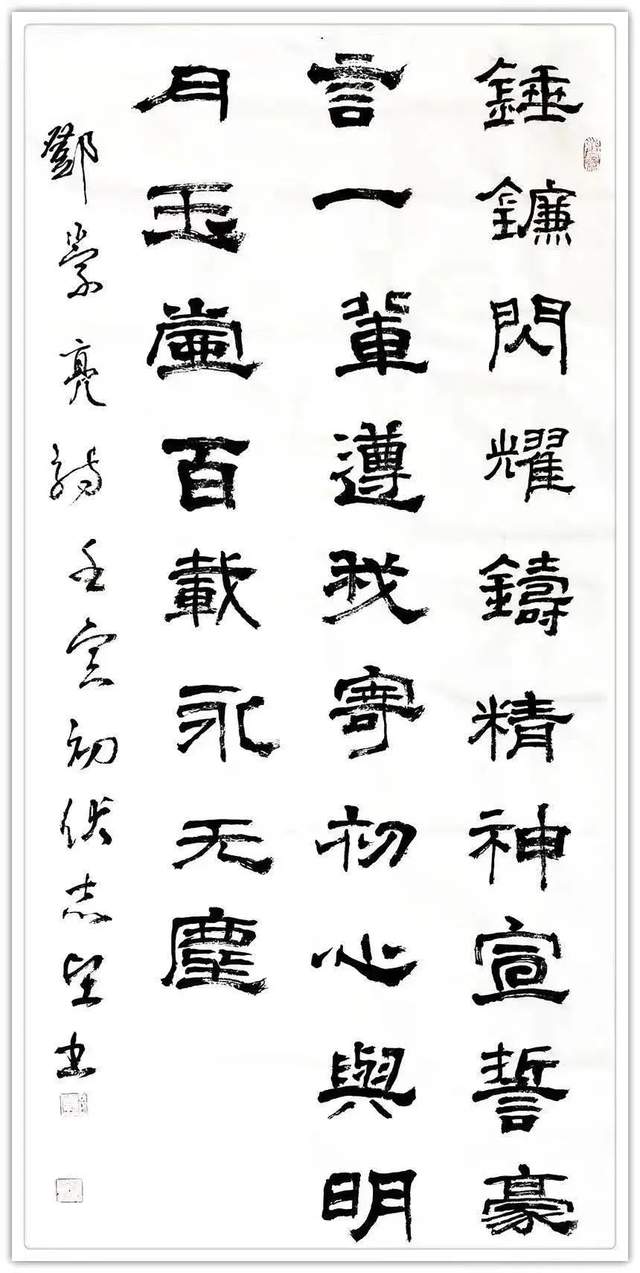 錘鐮閃耀鑄精神宣誓豪
言一輩遵我寄初心與明
月玉壺百載永无塵
鄧崇亮詩壬寅初伏志望書